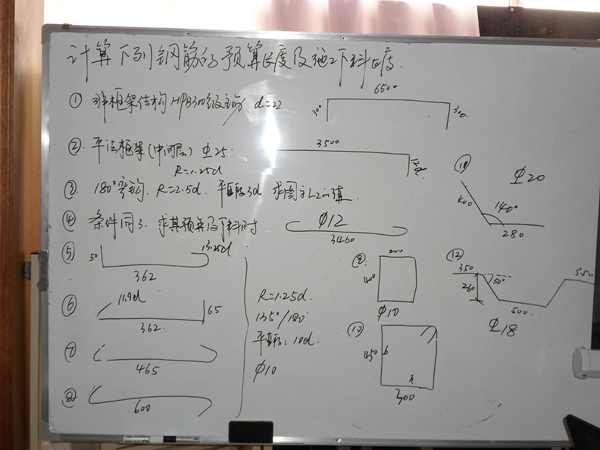 计算下列钢筋的预算长度及施工下料长度.
① 非框架结构 HPB300级主筋 d=22
6500
300
300
② 平法框架(中间层) Φ25.
R=1.25d
3500
③ 180°弯钩. R=2.5d. 平直段3d
④ 条件同3. 求其预算及下料尺寸
Φ12
3460
⑤ 50
13.25d
362
⑥ 11.9d
65
362
⑦
465
⑧
600
R=1.25d.
135°/180°
平直段: 10d.
Φ10
⑨
200
Φ10
⑩
450
b
h
300
Φ20
140°
280
⑫
350
500
Φ18